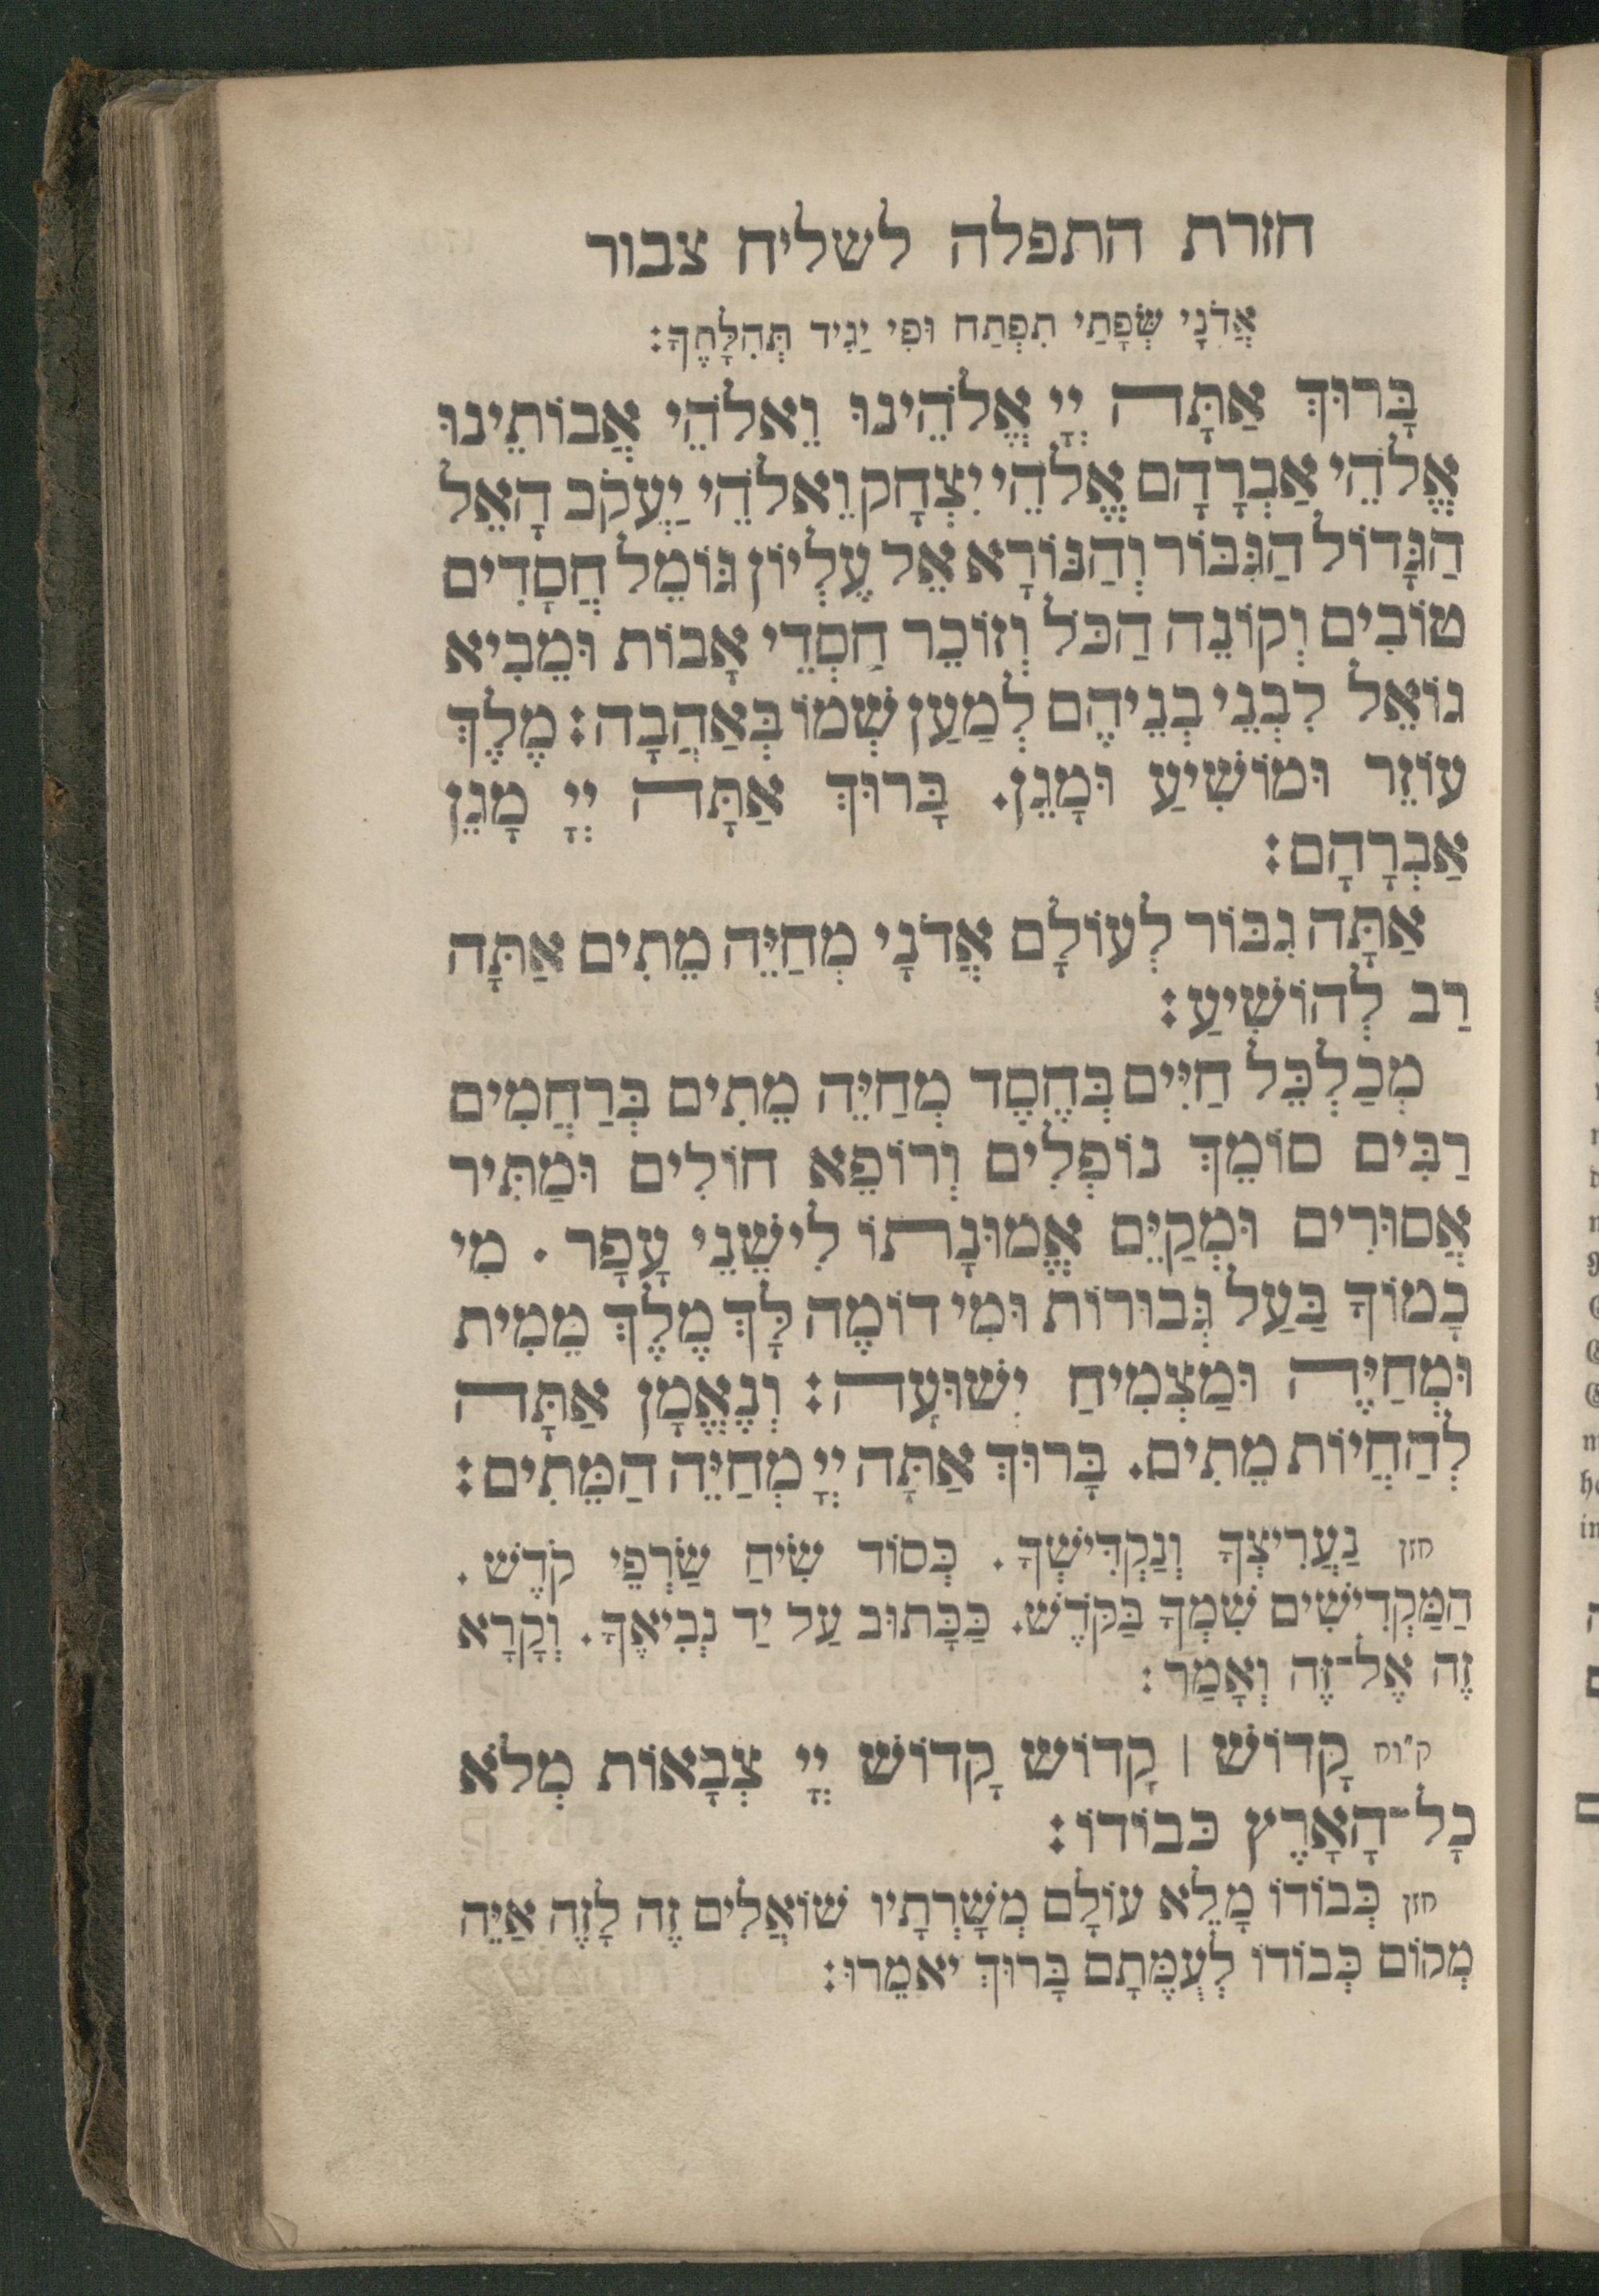 חזרת התפלה לשליח צבור
אֲדֹנָי שְׂפָתַי תִפְתַח וּפִי יַגִיד תְּהִלָּתֶךָ:
בָּרוּךְ אַתָּה יְיָ אֱלֹהֵינוּ וֵאלֹהֵי אֲבוֹתֵינוּ
אֱלֹהֵי אַבְרָהָם אֱלֹהֵי יִצְחָק וֵאלֹהֵי יַעֲקֹב הָאֵל
הַגָּדוֹל הַגִּבּוֹר וְהַנּוֹרָא אֵל עֶלְיוֹן גּוֹמֵל חֲסָדִים
טוֹבִים וְקוֹנֵה הַכֹּל וְזוֹכֵר חַסְדֵי אָבוֹת וּמֵבִיא
גוֹאֵל לִבְנֵי בְנֵיהֶם לְמַעַן שְׁמוֹ בְּאַהֲבָה: מֶלֶךְ
עוֹזֵר וּמוֹשִׁיעַ וּמָגֵן. בָּרוּךְ אַתָּה יְיָ מָגֵן
אַבְרָהָם:
אַתָּה גִבּוֹר לְעוֹלָם אֲדֹנָי מְחַיֵּה מֵתִים אַתָּה
רַב לְהוֹשִׁיעַ:
מְכַלְכֵּל חַיִּים בְּחֶסֶד מְחַיֵּה מֵתִים בְּרַחֲמִים
רַבִּים סוֹמֵךְ נוֹפְלִים וְרוֹפֵא חוֹלִים וּמַתִּיר
אֲסוּרִים וּמְקַיֵּם אֱמוּנָתוֹ לִישֵׁנֵי עָפָר. מִי
כָמוֹךָ בַּעַל גְּבוּרוֹת וּמִי דוֹמֶה לָּךְ מֶלֶךְ מֵמִית
וּמְחַיֶּה וּמַצְמִיחַ יְשׁוּעָה: וְנֶאֱמָן אַתָּה
לְהַחֲיוֹת מֵתִים. בָּרוּךְ אַתָּה יְיָ מְחַיֵּה הַמֵּתִים:
חזן נַעֲרִיצְךָ וְנַקְדִּישְׁךָ. כְּסוֹד שִׂיחַ שַׂרְפֵי קֹדֶשׁ.
הַמַּקְדִישִׁים שִׁמְךָ בַּקֹּדֶשׁ. כַּכָּתוּב עַל יַד נְבִיאֶךָ. וְקָרָא
זֶה אֶל־זֶה וְאָמַר:
ק"וח קָדוֹשׁ ׀ קָדוֹשׁ קָדוֹשׁ יְיָ צְבָאוֹת מְלֹא
כָל־הָאָרֶץ כּבוֹדוֹ:
חזן כְּבוֹדוֹ מָלֵא עוֹלָם מְשָׁרְתָיו שׁוֹאֲלִים זֶה לָזֶה אַיֵּה
מְקוֹם כְּבוֹדוֹ לְעֻמָּתָם בָּרוּךְ יֹאמֵרוּ: